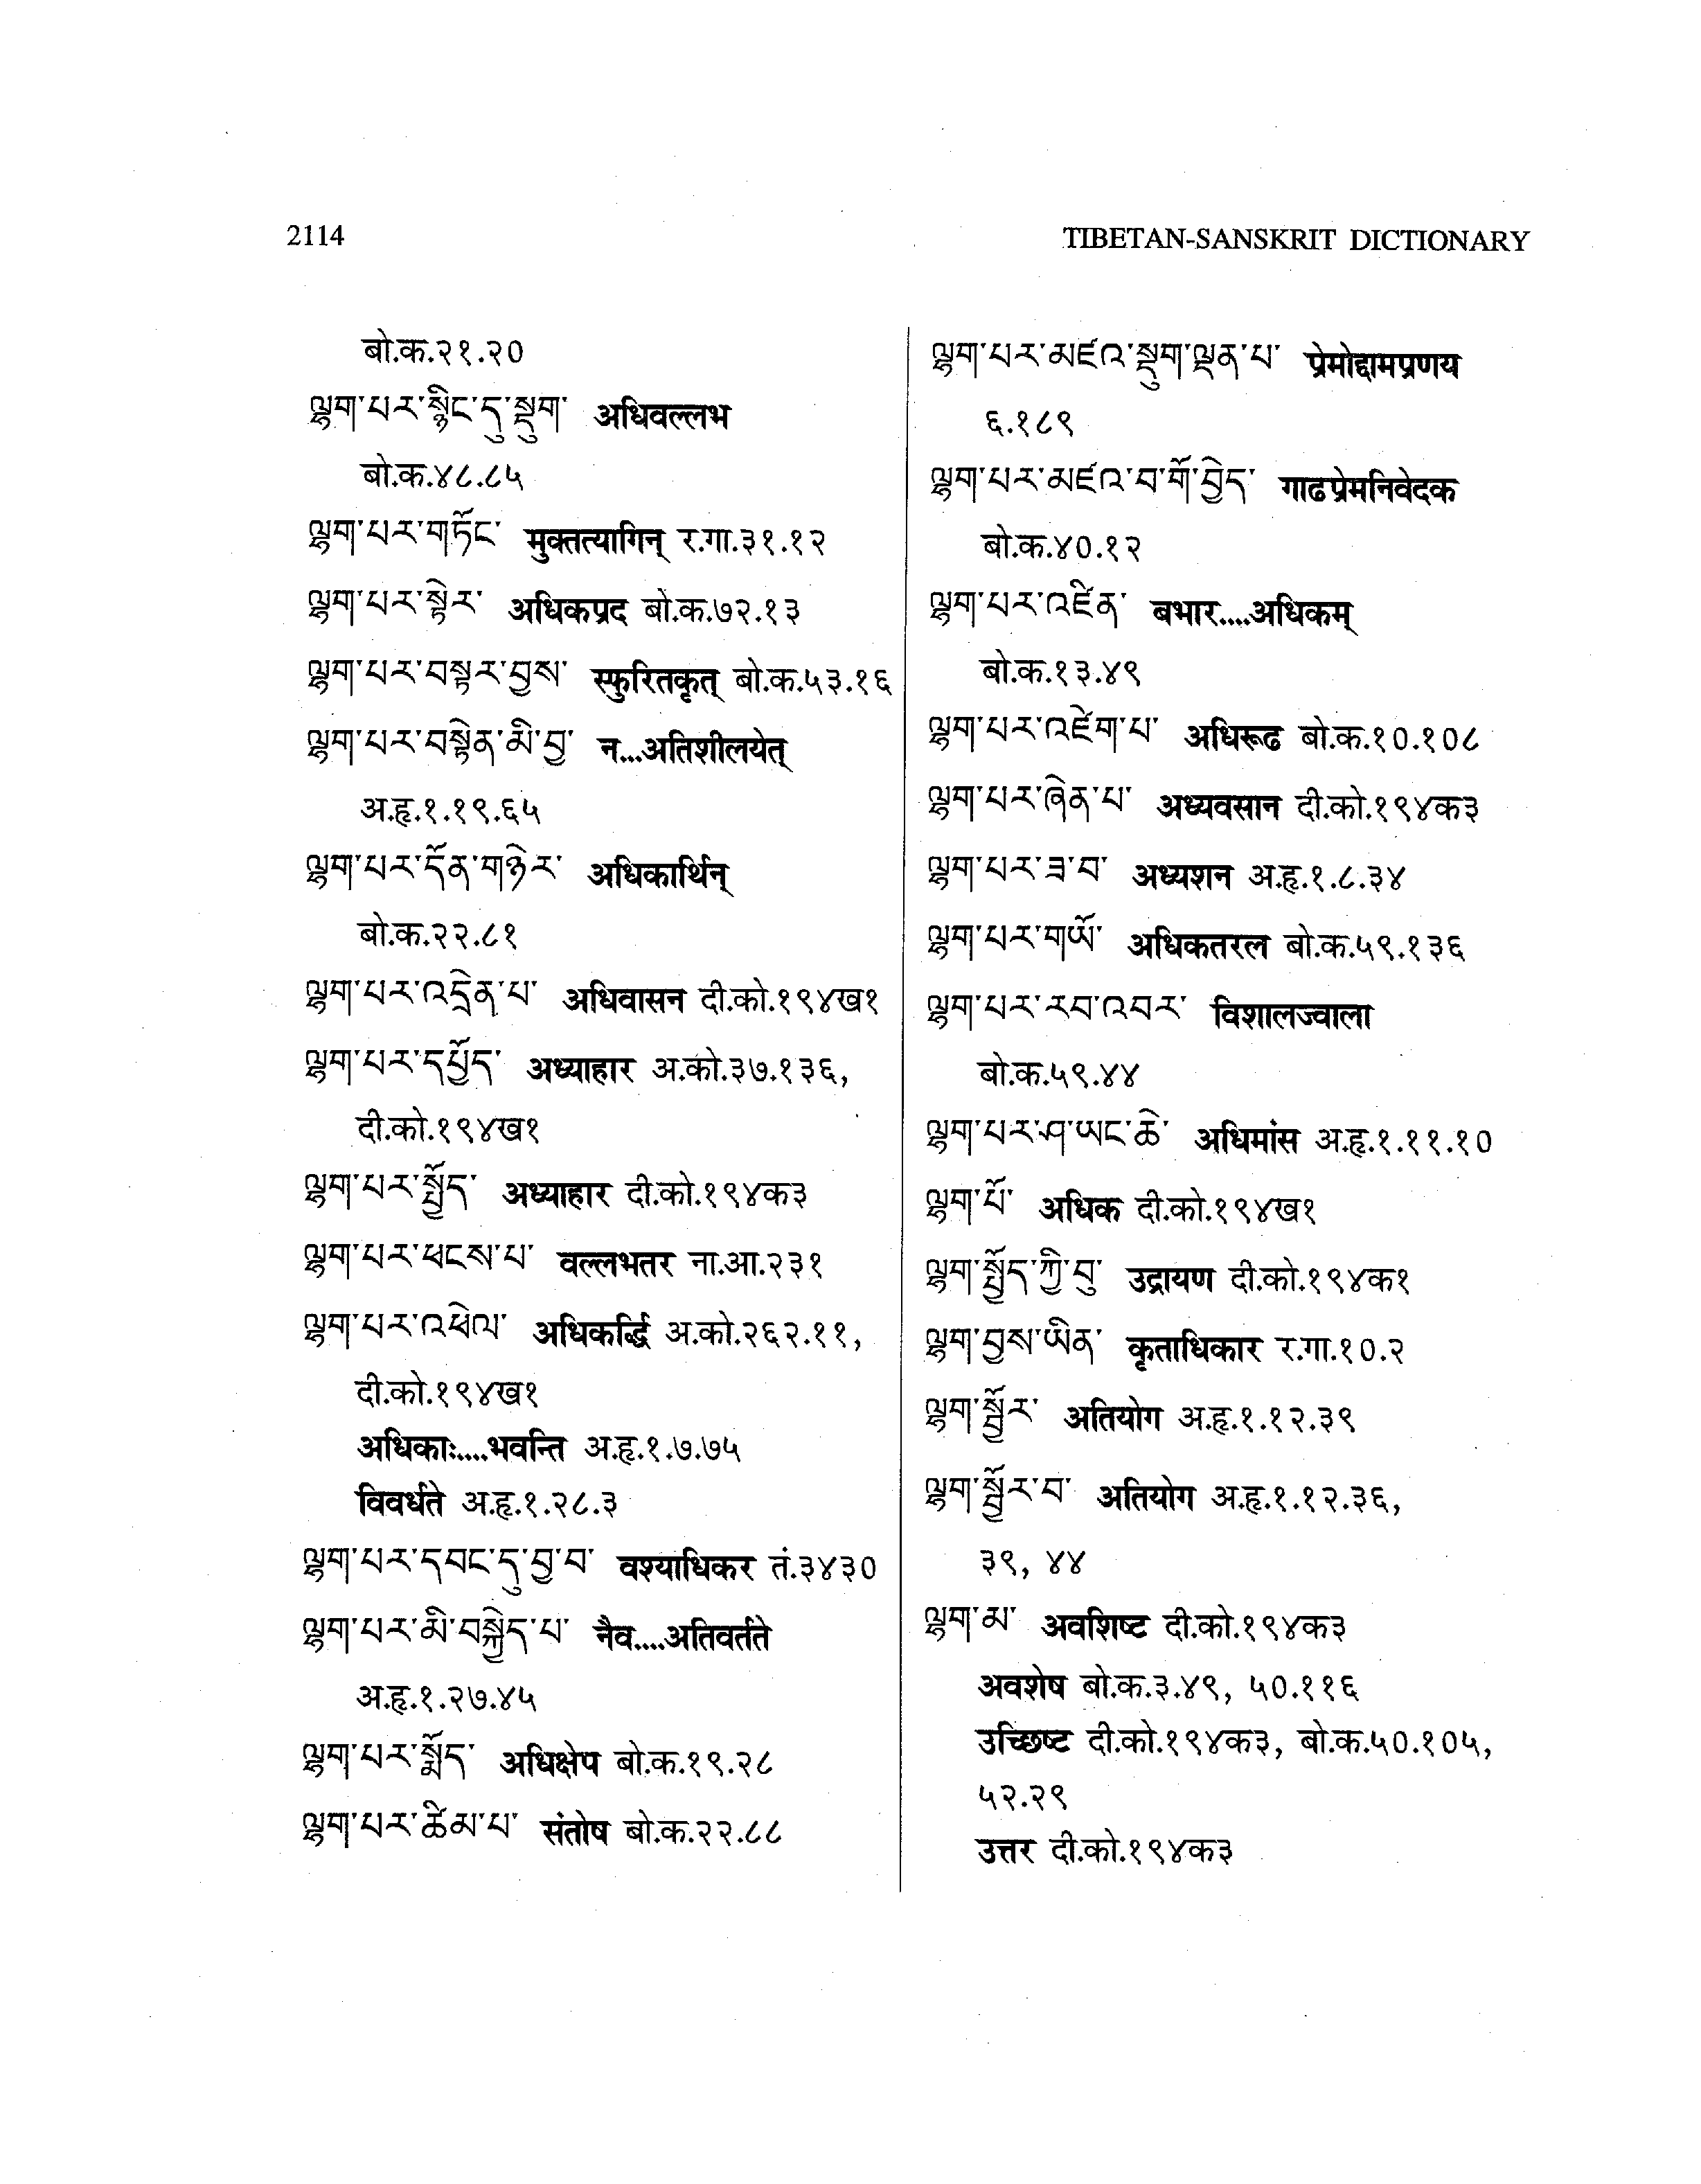 2114
TIBETAN-SANSKRIT DICTIONARY
बो.क.२१.२०
ལྷག་པར་སྙིང་དུ་སྡུག་ अधिवल्लभ
बो.क.४८.८५
ལྷག་པར་གཏོང་ मुक्तत्यागिन् र.गा.३१.१२
ལྷག་པར་སྟེར་ अधिकप्रद बो.क.७२.१३
ལྷག་པར་བསྟར་བྱས་ स्फुरितकृत् बो.क.५३.१६
ལྷག་པར་བསྟེན་མི་བྱ་ न...अतिशीलयेत्
अ.हृ.१.१९.६५
ལྷག་པར་དོན་གཉེར་ अधिकार्थिन्
बो.क.२२.८१
ལྷག་པར་འདྲེན་པ་ अधिवासन दी.को.१९४ख१
ལྷག་པར་དཔྱོད་ अध्याहार अ.को.३७.१३६,
दी.को.१९४ख१
ལྷག་པར་སྤྱོད་ अध्याहार दी.को.१९४क३
ལྷག་པར་ཕངས་པ་ वल्लभतर ना.आ.२३१
ལྷག་པར་འཕེལ་ अधिकर्द्धि अ.को.२६२.११,
दी.को.१९४ख१
अधिकाः....भवन्ति अ.हृ.१.७.७५
विवर्धते अ.हृ.१.२८.३
ལྷག་པར་དབང་དུ་བྱ་བ་ वश्याधिकर तं.३४३०
ལྷག་པར་མི་བསྐྱེད་པ་ नैव....अतिवर्तते
अ.हृ.१.२७.४५
ལྷག་པར་སྨོད་ अधिक्षेप बो.क.१९.२८
ལྷག་པར་ཚིམ་པ་ संतोष बो.क.२२.८८
ལྷག་པར་མཛའ་སྡུག་ལྡན་པ་ प्रेमोद्दामप्रणय
६.१८९
ལྷག་པར་མཛའ་བ་གོ་བྱེད་ गाढप्रेमनिवेदक
बो.क.४०.१२
ལྷག་པར་འཛིན་ बभार....अधिकम्
बो.क.१३.४९
ལྷག་པར་འཛེག་པ་ अधिरूढ बो.क.१०.१०८
ལྷག་པར་ཞེན་པ་ अध्यवसान दी.को.१९४क३
ལྷག་པར་ཟ་བ་ अध्यशन अ.हृ.१.८.३४
ལྷག་པར་གཡོ་ अधिकतरल बो.क.५९.१३६
ལྷག་པར་རབ་འབར་ विशालज्वाला
बो.क.५९.४४
ལྷག་པར་ཤ་ཡང་ཆེ་ अधिमांस अ.हृ.१.११.१०
ལྷག་པོ་ अधिक दी.को.१९४ख१
ལྷག་སྤྱོད་ཀྱི་བུ་ उद्रायण दी.को.१९४क१
ལྷག་བྱས་ཡིན་ कृताधिकार र.गा.१०.२
ལྷག་སྦྱོར་ अतियोग अ.हृ.१.१२.३९
ལྷག་སྦྱོར་བ་ अतियोग अ.हृ.१.१२.३६,
३९, ४४
ལྷག་མ་ अवशिष्ट दी.को.१९४क३
अवशेष बो.क.३.४९, ५०.११६
उच्छिष्ट दी.को.१९४क३, बो.क.५०.१०५,
५२.२९
उत्तर दी.को.१९४क३